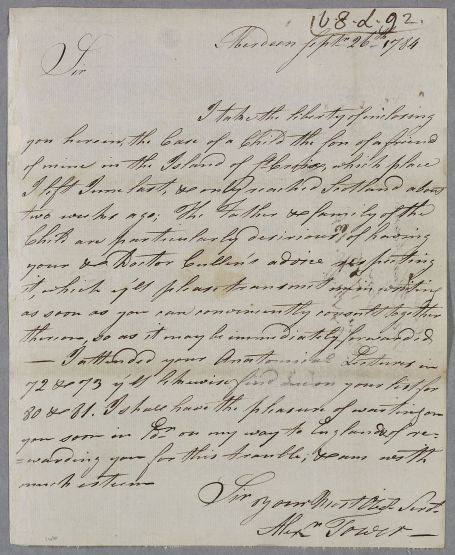 168.L.92.
Aberdeen Septr. 26th. 1784
Sir
I take the liberty of inclosing
you herein, the Case of a Child the son of a friend
of mine in the Island of St. Croix, which place
I left June last, & only reached Scotland about
two weeks ago; The Father & family of the
Child are particularly desirious of having
your & Doctor Cullen's advice respecting
it, which you'll please transmit me in writing
as soon as you can conveniently consult together
thereon, so as it may be immediately forwarded
— I attended your Anatomical Lectures in
72 & 73 you'll likewise find me on your list for
80 & 81. I shall have the pleasure of waiting on
you soon in Edr. on my way to England & of re-
=warding you for this trouble, & am with
much esteem
Sir
your Most Obedt. Servt.
Alexr. Tower —